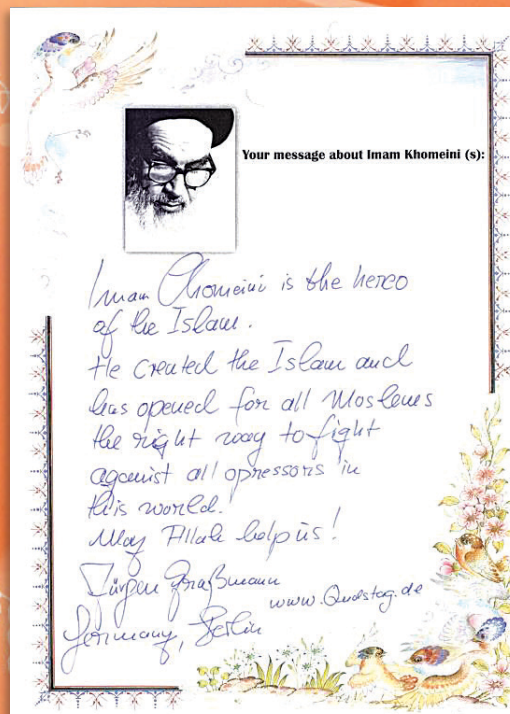 Your message about Imam Khomeini (s):
Imam Chomeini is the heroo
of the Islam.
He created the Islam and
has opened for all Moslems
the right way to fight
against all opressors in
this world.
May Allah help us!
Jürgen Graßmann
www.Qudstag.de
Germany, Berlin